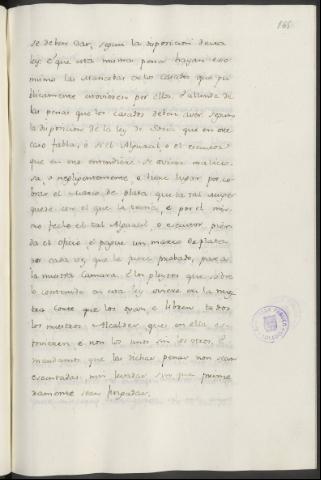 165
se deben dar, segun la disposicion de esta
ley: é que esta misma pena hayan eso
mismo las Mancebas de los casados que pu
blicamente estovieren por ellos, é allende de
las penas que los casados deben aver segun
la disposicion de la ley de Soria que en este
caso fabla, o si el Alguacil, o el executor
que en eso entendiere se oviere malicio
sa, o negligentemente o tiene lugar por co
brar el Marco de plata que la tal muger
quede con el que la tenia, é por el mis
mo fecho el tal Alguacil o executor, pier
da el oficio é pague un marco de plata
por cada vez que le fuere probado, para
la nuestra Camara. É los pleytos que sobre
lo contenido en esta ley oviere en la nues
tra Corte que los oyan, é libren todos
los nuestros Alcaldes que en ella es
tovieren é non los unos sin los otros. É
mandamos que las dichas penas non sean
executadas nin levadas sin que prime
ramente sean juzgadas.